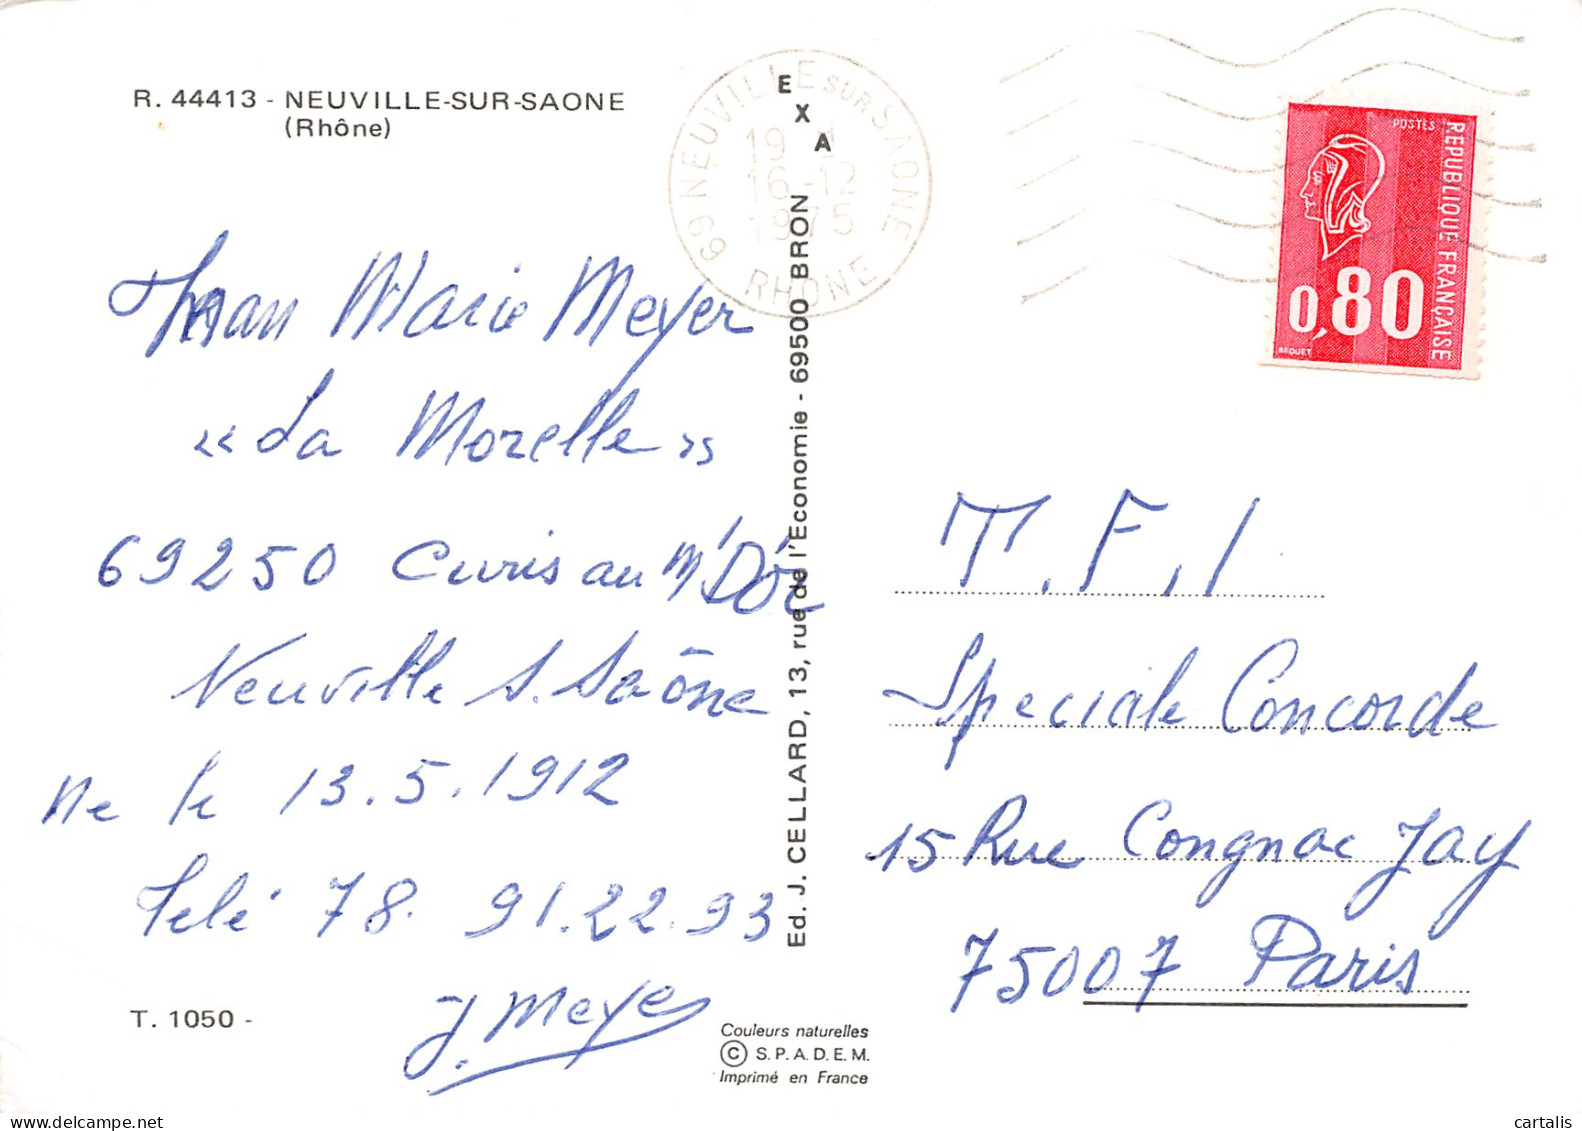 R. 44413 - NEUVILLE-SUR-SAONE
(Rhône)
Jean Marie Meyer
« La Morelle »
69250 Curis au M' D'Or
Neuville s. Saône
Ne le 13.5.1912
Telé 78. 91.22.93
J. Meyer
T. 1050 -
EXA
Ed. J. CELLARD, 13, rue de l'Economie - 69500 BRON
Couleurs naturelles
© S.P.A.D.E.M.
Imprimé en France
69 NEUVILLE SUR SAONE
16-12
1975
RHONE
POSTES
REPUBLIQUE FRANÇAISE
0,80
BEQUET
T.F.1
Speciale Concorde
15 Rue Congnac Jay
75007 Paris
cartalis